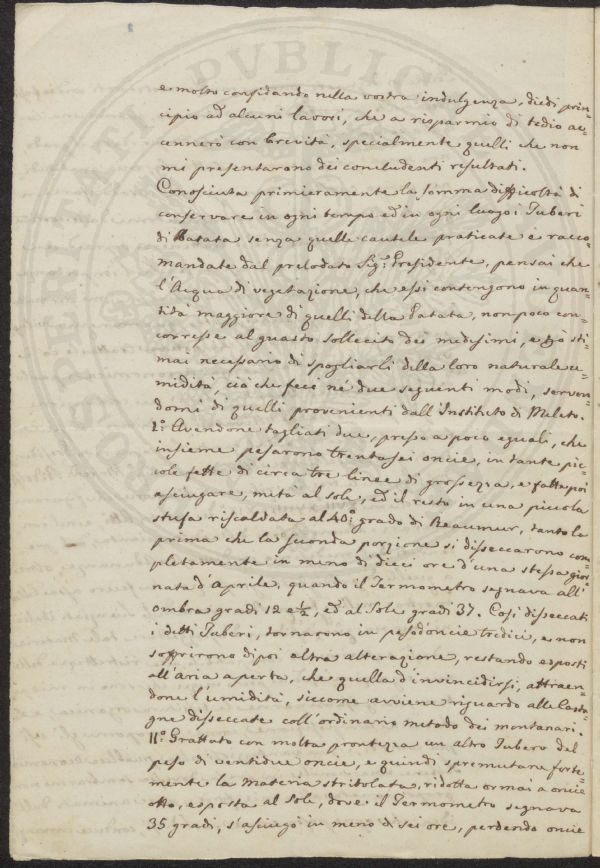 e molto confidando nella vostra indulgenza, diedi prin-
cipio ad alcuni lavori, che a risparmio di tedio ac-
cennerò con brevità, specialmente quelli che non
mi presentarono dei concludenti resultati.
Conosciuta primieramente la somma difficoltà di
conservare in ogni tempo ed in ogni luogo i Tuberi
di Batata senza quelle cautele praticate e racco-
mandate dal prelodato Sig.r Presidente, pensai che
l'Acqua di vegetazione, che essi contengono in quan-
tità maggiore di quelli della Patata, non poco con-
corresse al guasto sollecito dei medesimi, e sti-
mai necessario di spogliarli della loro naturale u-
midità, ciò che feci ne' due seguenti modi, serven-
domi di quelli provenienti dall'Instituto di Meleto.
I.° Avendone tagliati due, presso a poco eguali, che
insieme pesarono trentasei oncie, in tante pic-
cole fette di circa tre linee di grossezza, e fatte poi
asciugare, metà al Sole, ed il resto in una piccola
stufa riscaldata al 40.° grado di Reaumur, tanto la
prima che la seconda porzione si disseccarono com-
pletamente in meno di dieci ore d'una stessa gior-
nata d'Aprile, quando il Termometro segnava all'
ombra gradi 12 e ½, ed al Sole gradi 37. Così disseccati
i detti Tuberi, tornarono in peso d'oncie tredici, e non
soffrirono dipoi altra alterazione, restando esposti
all'Aria aperta, che quella d'invincidirsi, attraen-
done l'umidità, siccome avviene riguardo alle Casta-
gne disseccate coll'ordinario metodo dei montanari.
II.° Grattato con molta prontezza un altro Tubero del
peso di ventidue oncie, e quindi spremutane forte-
mente la Materia stritolata, ridotta ormai a oncie
otto, esposta al Sole, dove il Termometro segnava
35 gradi, s'asciugò in meno di sei ore, perdendo oncie